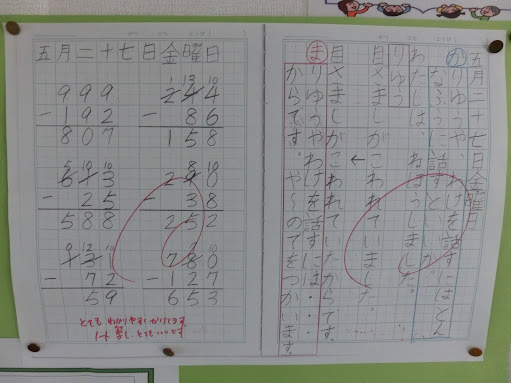 五月二十七日金曜日
1 13 10
999 244
-192 - 86
807 158
5 10 10 8 10
613 290
- 25 - 38
588 252
0 12 10
131 780
- 72 -127
59 653
とてもわかりやすくかけてます。
とてもいいです
五月二十七日金曜日
か りゆうや、わけを話すにはどん
なふうに話すといいか
わたしは、ねぼうしました。
りゆう
目ざましがこわれていました。
↓
目ざましがこわれていたからです。
ま りゆうやわけを話すには・・・
からです。や～のでをつかいます。